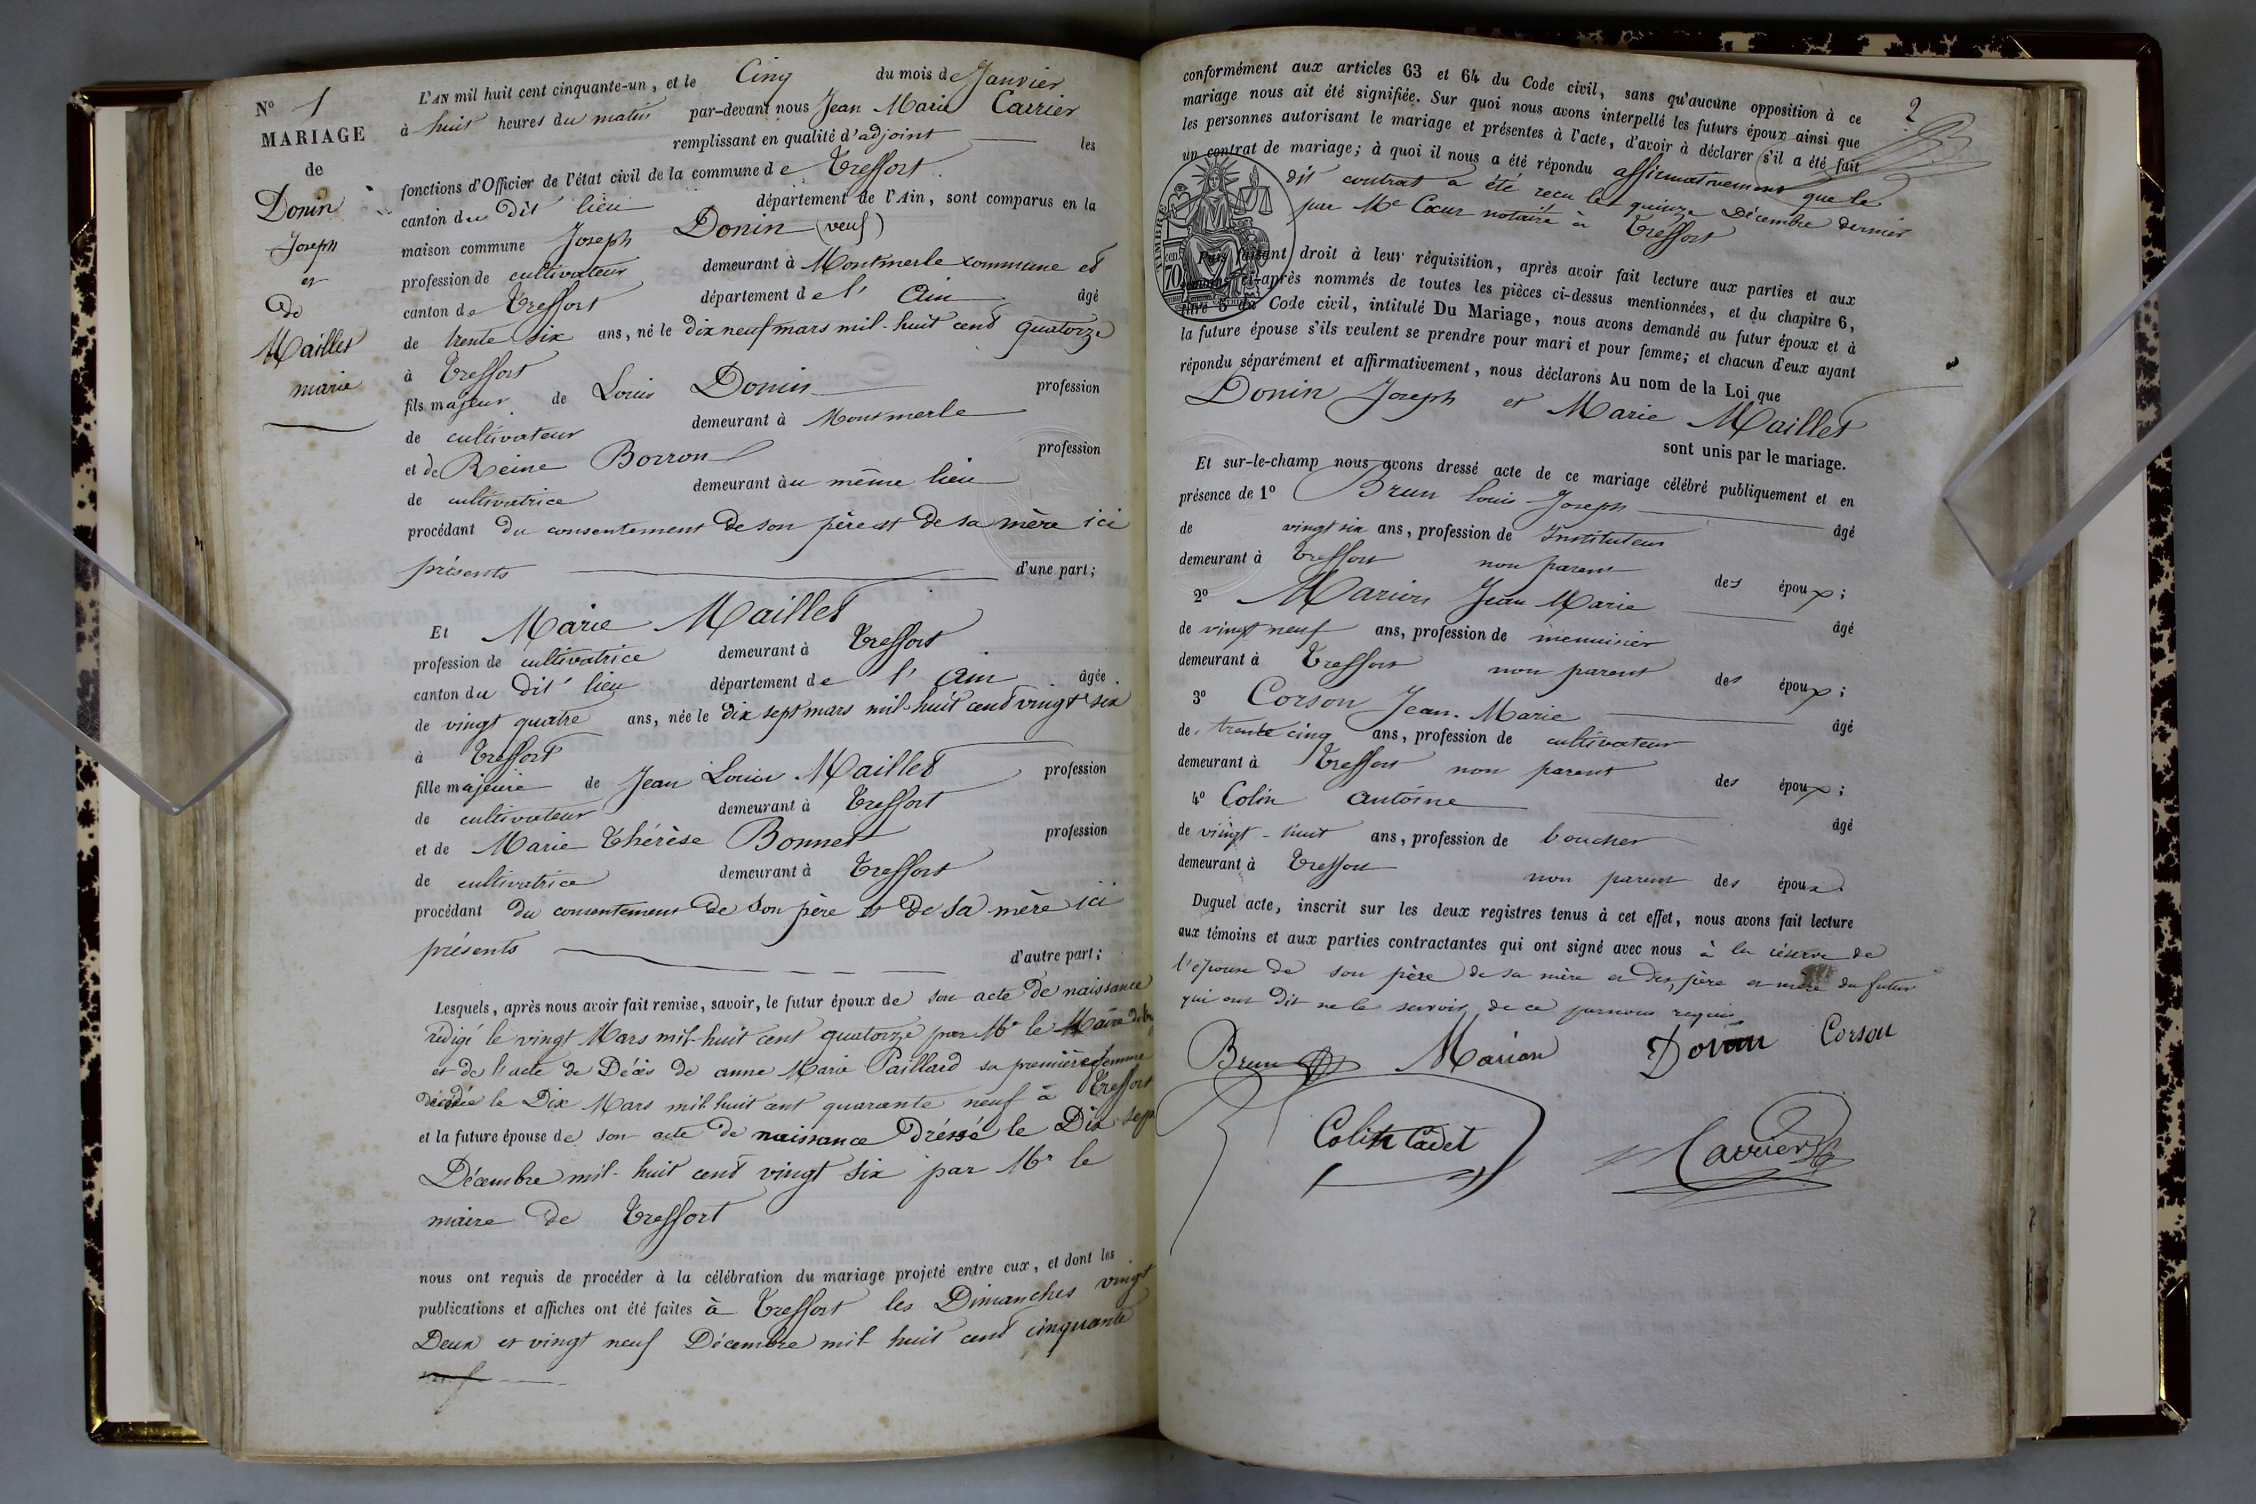 N° 1
MARIAGE
de
Donin
Joseph
et
de
Maillet
marie
L'AN mil huit cent cinquante-un, et le Cinq du mois de Janvier
à huit heures du matin par-devant nous Jean Marie Carrier
remplissant en qualité d'adjoint les
fonctions d'Officier de l'état civil de la commune de Treffort
canton du dit lieu département de l'Ain, sont comparus en la
maison commune Joseph Donin (veuf)
profession de cultivateur demeurant à Montmerle commune et
canton de Treffort département de l'Ain âgé
de trente six ans, né le dix neuf mars mil-huit cent quatorze
à Treffort
fils majeur de Louis Donin profession
de cultivateur demeurant à Montmerle
et de Reine Borron profession
de cultivatrice demeurant au même lieu
procédant du consentement de son père et de sa mère ici
présents d'une part;
Et Marie Maillet
profession de cultivatrice demeurant à Treffort
canton du dit lieu département de l'Ain âgée
de vingt quatre ans, née le dix sept mars mil-huit cent vingt six
à Treffort
fille majeure de Jean Louis Maillet profession
de cultivateur demeurant à Treffort
et de Marie Thérèse Bonnet profession
de cultivatrice demeurant à Treffort
procédant du consentement de son père et de sa mère ici
présents d'autre part;
Lesquels, après nous avoir fait remise, savoir, le futur époux de son acte de naissance
rédigé le vingt Mars mil-huit cent quatorze par Mr le Maire
et de l'acte de Décès de anne Marie Paillard sa première femme
décédée le Dix Mars mil huit cent quarante neuf à Treffort
et la future épouse de son acte de naissance dréssé le Dix sept
Décembre mil-huit cent vingt six par Mr le
maire de Treffort
nous ont requis de procéder à la célébration du mariage projeté entre eux, et dont les
publications et affiches ont été faites à Treffort les Dimanches vingt
Deux et vingt neuf Décembre mil huit cent cinquante
2
conformément aux articles 63 et 64 du Code civil, sans qu'aucune opposition à ce
mariage nous ait été signifiée. Sur quoi nous avons interpellé les futurs époux ainsi que
les personnes autorisant le mariage et présentes à l'acte, d'avoir à déclarer s'il a été fait
un contrat de mariage; à quoi il nous a été répondu affirmativement que le
dit contrat a été reçu le quinze Décembre dernier
par Me Cœur notaire à Treffort
TIMBRE
70
Puis faisant droit à leur réquisition, après avoir fait lecture aux parties et aux
témoins ci-après nommés de toutes les pièces ci-dessus mentionnées, et du chapitre 6,
titre 5 du Code civil, intitulé Du Mariage, nous avons demandé au futur époux et à
la future épouse s'ils veulent se prendre pour mari et pour femme; et chacun d'eux ayant
répondu séparément et affirmativement, nous déclarons Au nom de la Loi que
Donin Joseph et Marie Maillet
sont unis par le mariage.
Et sur-le-champ nous avons dressé acte de ce mariage célébré publiquement et en
présence de 1° Brun Louis Joseph âgé
de vingt six ans, profession de Instituteur
demeurant à Treffort non parent des époux;
2° Marion Jean Marie âgé
de vingt neuf ans, profession de menuisier
demeurant à Treffort non parent des époux;
3° Corson Jean-Marie âgé
de trente cinq ans, profession de cultivateur
demeurant à Treffort non parent des époux;
4° Colin antoine âgé
de vingt-huit ans, profession de boucher
demeurant à Treffort non parent des époux.
Duquel acte, inscrit sur les deux registres tenus à cet effet, nous avons fait lecture
aux témoins et aux parties contractantes qui ont signé avec nous à la réserve de
l'épouse de son père de sa mère et des père et mère du futur
qui ont dit ne le savoir de ce par nous requis
Brun Marion Donin Corson
Colin Cadet Carrier